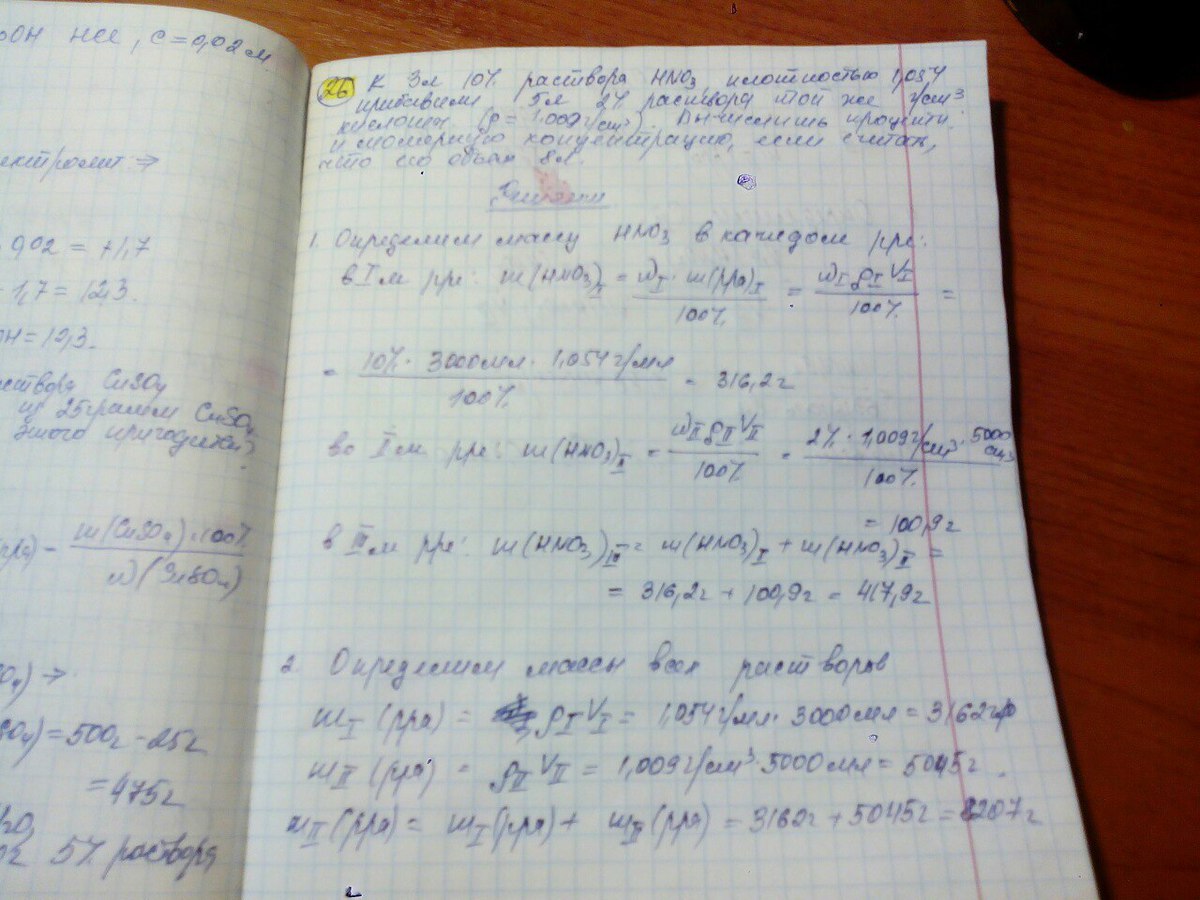 OH HCl, C = 0,02 М
электролит ⇒
0,02 = +1,7
- 1,7 = 12,3.
OH = 12,3.
раствора CuSO4
из 25 грамм CuSO4
этого
m(CuSO4) · 100%
ω(CuSO4)
= 500г - 25г
= 475г
5% раствора
26 К 3л 10% раствора HNO3 плотностью 1,054
прибавили 5л 2% раствора той же г/см3
кислоты (ρ = 1,009 г/см3). Вычислить процентн.
и молярную концентрацию, если считать,
что его объем 8л.
Решение
1. Определим массу HNO3 в каждом рре:
в I м рре: m(HNO3)I = ωI · m(рра)I / 100% = ωI ρI VI / 100% =
= 10% · 3000мл · 1,054 г/мл / 100% = 316,2г
во II м рре: m(HNO3)II = ωII ρII VII / 100% = 2% · 1,009г/см3 · 5000 см3 / 100%
= 100,9г
в III м рре: m(HNO3)III = m(HNO3)I + m(HNO3)II =
= 316,2г + 100,9г = 417,9г
2. Определим массы всех растворов
mI (рра) = ρI VI = 1,054 г/мл · 3000мл = 3162г
mII (рра) = ρII VII = 1,009 г/см3 · 5000мл = 5045г.
mII (рра) = mI (рра) + mII (рра) = 3162г + 5045г = 8207г